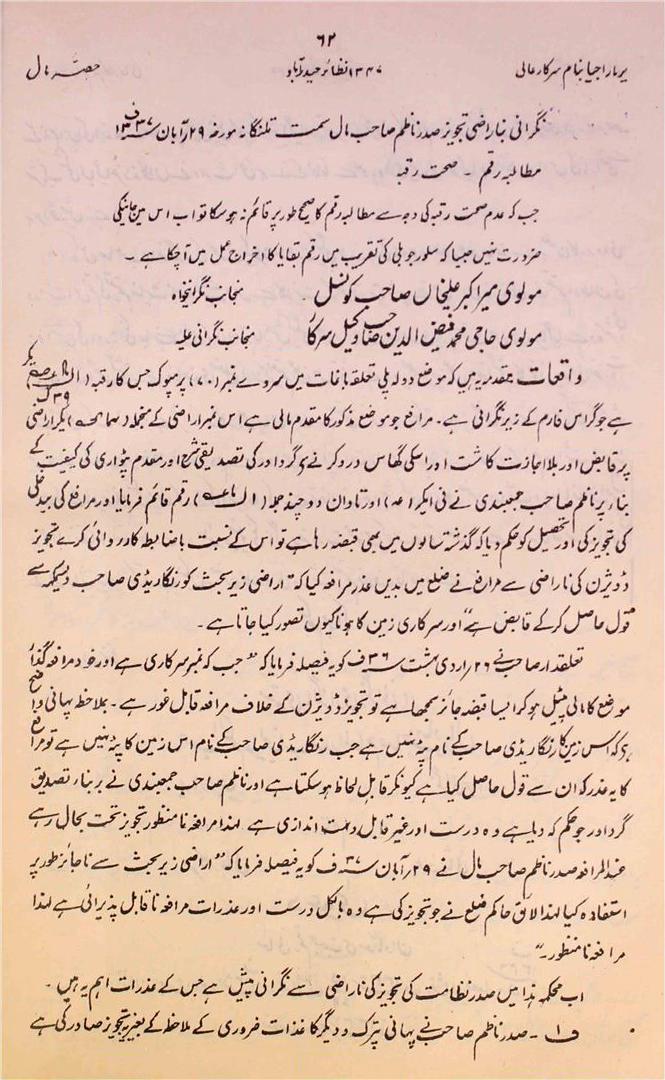 ۶۲
یرماراجیا بنام سرکار عالی ۱۳۴۷ نظائر حیدرآباد حصہ مال
نگرانی بناراضی تجویز صدر ناظم صاحب مال سمت تلنگانہ مورخہ ۲۹ آبان ۱۳۳۷ ف
مطالبہ رقم ۔ صحت رقبہ
جب کہ عدم صحت رقبہ کی وجہ سے مطالبہ رقم کا صحیح طور پر قائم نہ ہوسکا تو اب اس میں جانیکی
ضرورت نہیں جیسا کہ سلور جوبلی کی تقریب میں رقم بقایا کا اخراج عمل میں آچکا ہے ۔
مولوی میر اکبر علیخاں صاحب کونسل ۔ منجانب نگرانیخواہ
مولوی حاجی محمد فیض الدین صاحب وکیل سرکار منجانب نگرانی علیہ
واقعات مقدمہ یہ ہیں کہ موضع دولہ پلی تعلقہ باغات میں سروے نمبر (۷۰) پرمپوک جس کا رقبہ
ہے جو گراس فارم کے زیر نگرانی ہے ۔ مرافع جو موضع مذکور کا مقدم مالی ہے اس نمبر اراضی کے منجملہ ایکر اراضی
پر قابض اور بلا اجازت کاشت اور اسکی گھاس درو کرنے گرداور کی تصدیقی شرح اور مقدم پٹواری کی کیفیت کے
بناء پر ناظم صاحب جمعبندی نے فی ایکر اور تاوان دو چند جملہ رقم قائم فرمایا اور مرافع کی بیدخلی
کی تجویز کی اور تحصیل کو حکم دیا کہ گذشتہ سالوں میں بھی قبضہ رہا ہے تو اس کے نسبت باضابطہ کارروائی کرے تجویز
ڈویژن کی ناراضی سے مرافع نے ضلع میں بدیں عذر مرافعہ کیا کہ "اراضی زیر بحث کو رنگاریڈی صاحب دیسمکھ سے
قول حاصل کرکے قابض ہے" اور سرکاری زمین کا ہونا کیوں تصور کیا جاتا ہے ۔
تعلقدار صاحب نے ۲۶ اردی بہشت ۳۶ ف کو یہ فیصلہ فرمایا کہ "جب کہ نمبر سرکاری ہے اور خود مرافعہ گذار
موضع کا مالی پٹیل ہوکر ایسا قبضہ جائز سمجھا ہے تو تجویز ڈویژن کے خلاف مرافعہ قابل غور ہے ۔ بملاحظہ پہانی واضح
ہے کہ اس زمین کا رنگاریڈی صاحب کے نام پٹہ نہیں ہے جب رنگاریڈی صاحب کے نام اس زمین کا پٹہ نہیں ہے تو مرافع
کا یہ عذر کہ ان سے قول حاصل کیا ہے کیونکر قابل لحاظ ہوسکتا ہے اور ناظم صاحب جمعبندی نے بر بناء تصدیق
گرداور جو حکم کہ دیا ہے وہ درست اور غیر قابل دست اندازی ہے ۔ لہذا مرافعہ نامنظور تجویز تحت بحال رہے
عندالمرافعہ صدر ناظم صاحب مال نے ۲۹ آبان ۳۷ ف کو یہ فیصلہ فرمایا کہ "اراضی زیر بحث سے ناجائز طور پر
استفادہ کیا لہذا لائق حاکم ضلع نے جو تجویز کی ہے وہ بالکل درست اور عذرات مرافعہ ناقابل پذیرائی ہے لہذا
مرافعہ نامنظور ۔"
اب محکمہ ہذا میں صدر نظامت کی تجویز کی ناراضی سے نگرانی پیش ہے جس کے عذرات اہم یہ ہیں ۔
ف ۱ ۔ صدر ناظم صاحب نے پہانی پترک و دیگر کاغذات ضروری کے ملاحظہ کے بغیر یہ تجویز صادر کی ہے